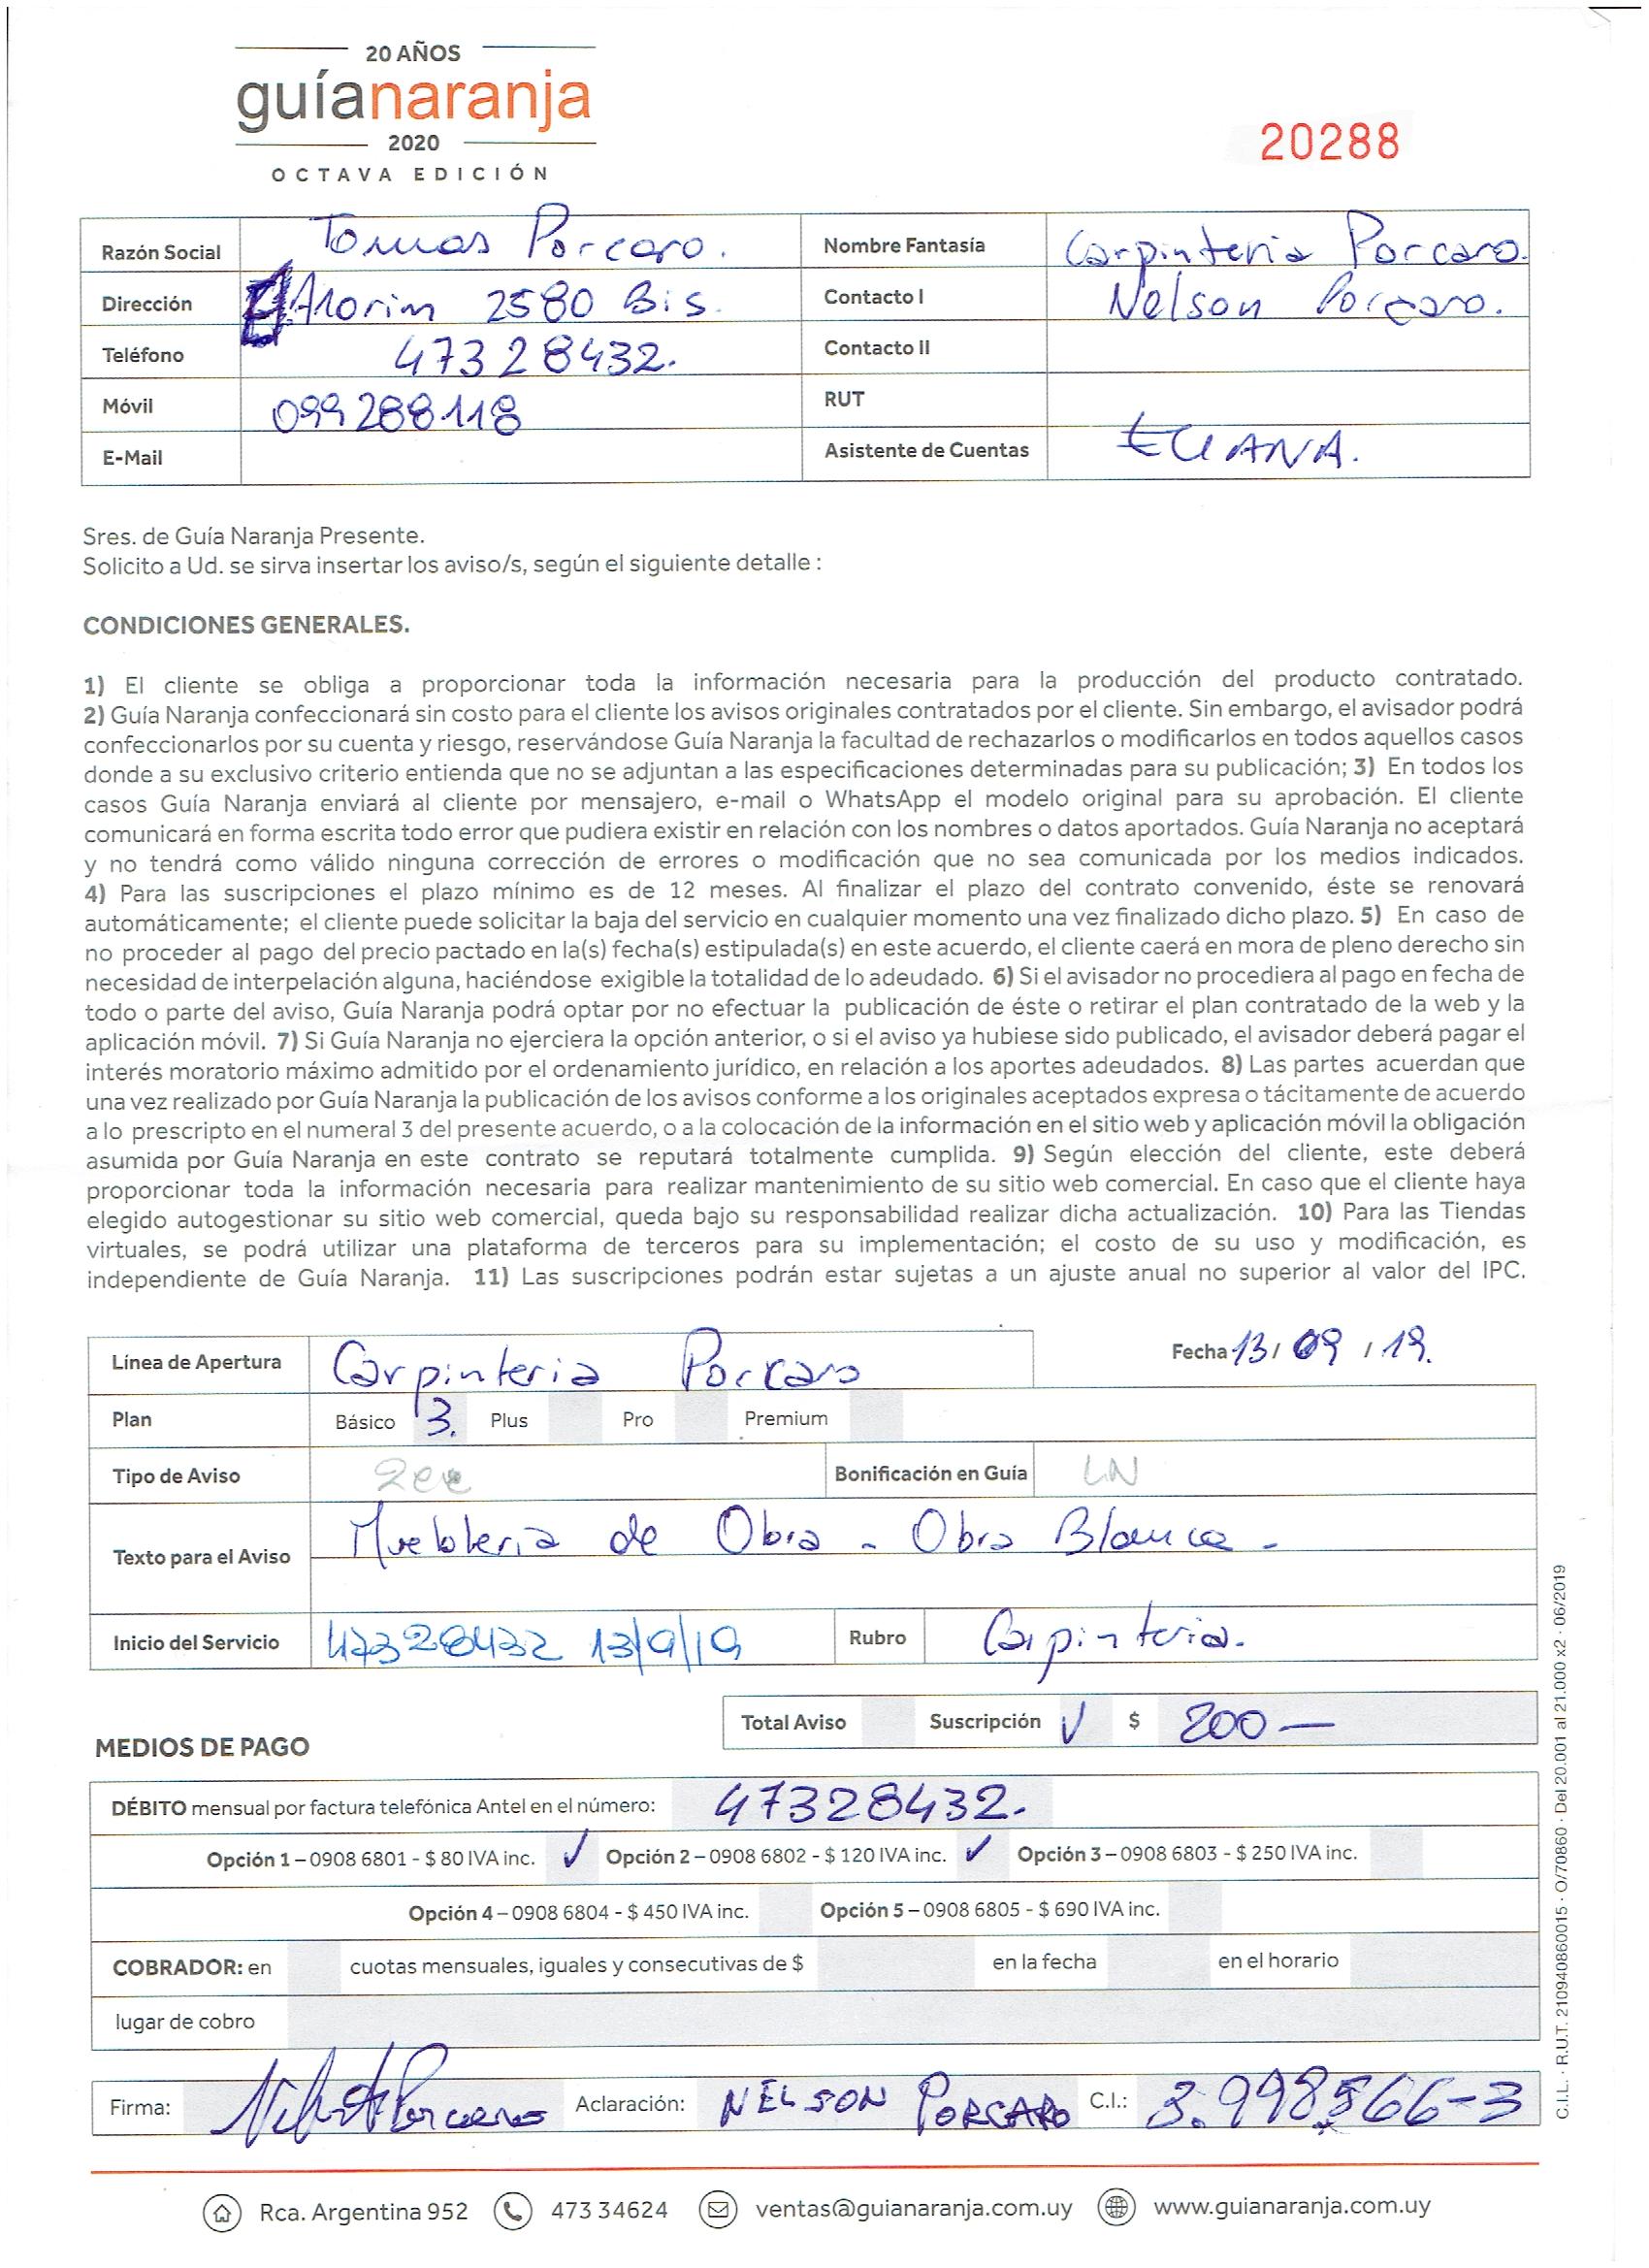 20 AÑOS
guíanaranja
2020
OCTAVA EDICIÓN
20288
Razón Social Tomas Porcaro. Nombre Fantasía Carpinteria Porcaro.
Dirección Amorim 2580 Bis. Contacto I Nelson Porcaro.
Teléfono 47328432. Contacto II
Móvil 099288118 RUT
E-Mail Asistente de Cuentas ELIANA.
Sres. de Guía Naranja Presente.
Solicito a Ud. se sirva insertar los aviso/s, según el siguiente detalle :
CONDICIONES GENERALES.
1) El cliente se obliga a proporcionar toda la información necesaria para la producción del producto contratado.
2) Guía Naranja confeccionará sin costo para el cliente los avisos originales contratados por el cliente. Sin embargo, el avisador podrá
confeccionarlos por su cuenta y riesgo, reservándose Guía Naranja la facultad de rechazarlos o modificarlos en todos aquellos casos
donde a su exclusivo criterio entienda que no se adjuntan a las especificaciones determinadas para su publicación; 3) En todos los
casos Guía Naranja enviará al cliente por mensajero, e-mail o WhatsApp el modelo original para su aprobación. El cliente
comunicará en forma escrita todo error que pudiera existir en relación con los nombres o datos aportados. Guía Naranja no aceptará
y no tendrá como válido ninguna corrección de errores o modificación que no sea comunicada por los medios indicados.
4) Para las suscripciones el plazo mínimo es de 12 meses. Al finalizar el plazo del contrato convenido, éste se renovará
automáticamente; el cliente puede solicitar la baja del servicio en cualquier momento una vez finalizado dicho plazo. 5) En caso de
no proceder al pago del precio pactado en la(s) fecha(s) estipulada(s) en este acuerdo, el cliente caerá en mora de pleno derecho sin
necesidad de interpelación alguna, haciéndose exigible la totalidad de lo adeudado. 6) Si el avisador no procediera al pago en fecha de
todo o parte del aviso, Guía Naranja podrá optar por no efectuar la publicación de éste o retirar el plan contratado de la web y la
aplicación móvil. 7) Si Guía Naranja no ejerciera la opción anterior, o si el aviso ya hubiese sido publicado, el avisador deberá pagar el
interés moratorio máximo admitido por el ordenamiento jurídico, en relación a los aportes adeudados. 8) Las partes acuerdan que
una vez realizado por Guía Naranja la publicación de los avisos conforme a los originales aceptados expresa o tácitamente de acuerdo
a lo prescripto en el numeral 3 del presente acuerdo, o a la colocación de la información en el sitio web y aplicación móvil la obligación
asumida por Guía Naranja en este contrato se reputará totalmente cumplida. 9) Según elección del cliente, este deberá
proporcionar toda la información necesaria para realizar mantenimiento de su sitio web comercial. En caso que el cliente haya
elegido autogestionar su sitio web comercial, queda bajo su responsabilidad realizar dicha actualización. 10) Para las Tiendas
virtuales, se podrá utilizar una plataforma de terceros para su implementación; el costo de su uso y modificación, es
independiente de Guía Naranja. 11) Las suscripciones podrán estar sujetas a un ajuste anual no superior al valor del IPC.
Línea de Apertura Carpinteria Porcaro Fecha 13 / 09 / 19.
Plan Básico 3. Plus Pro Premium
Tipo de Aviso Bonificación en Guía LN
Texto para el Aviso Muebleria de Obra - Obra Blanca -
Inicio del Servicio 47328432 13/9/19 Rubro Carpinteria.
Total Aviso Suscripción ✓ $ 200 —
MEDIOS DE PAGO
DÉBITO mensual por factura telefónica Antel en el número: 47328432.
Opción 1 – 0908 6801 - $ 80 IVA inc. ✓ Opción 2 – 0908 6802 - $ 120 IVA inc. ✓ Opción 3 – 0908 6803 - $ 250 IVA inc.
Opción 4 – 0908 6804 - $ 450 IVA inc. Opción 5 – 0908 6805 - $ 690 IVA inc.
COBRADOR: en cuotas mensuales, iguales y consecutivas de $ en la fecha en el horario
lugar de cobro
Firma: Aclaración: NELSON PORCARO C.I.: 3.998.566-3
Rca. Argentina 952 473 34624 ventas@guianaranja.com.uy www.guianaranja.com.uy
C.I.L. · R.U.T. 210940860015 · O/70860 · Del 20.001 al 21.000 x2 · 06/2019